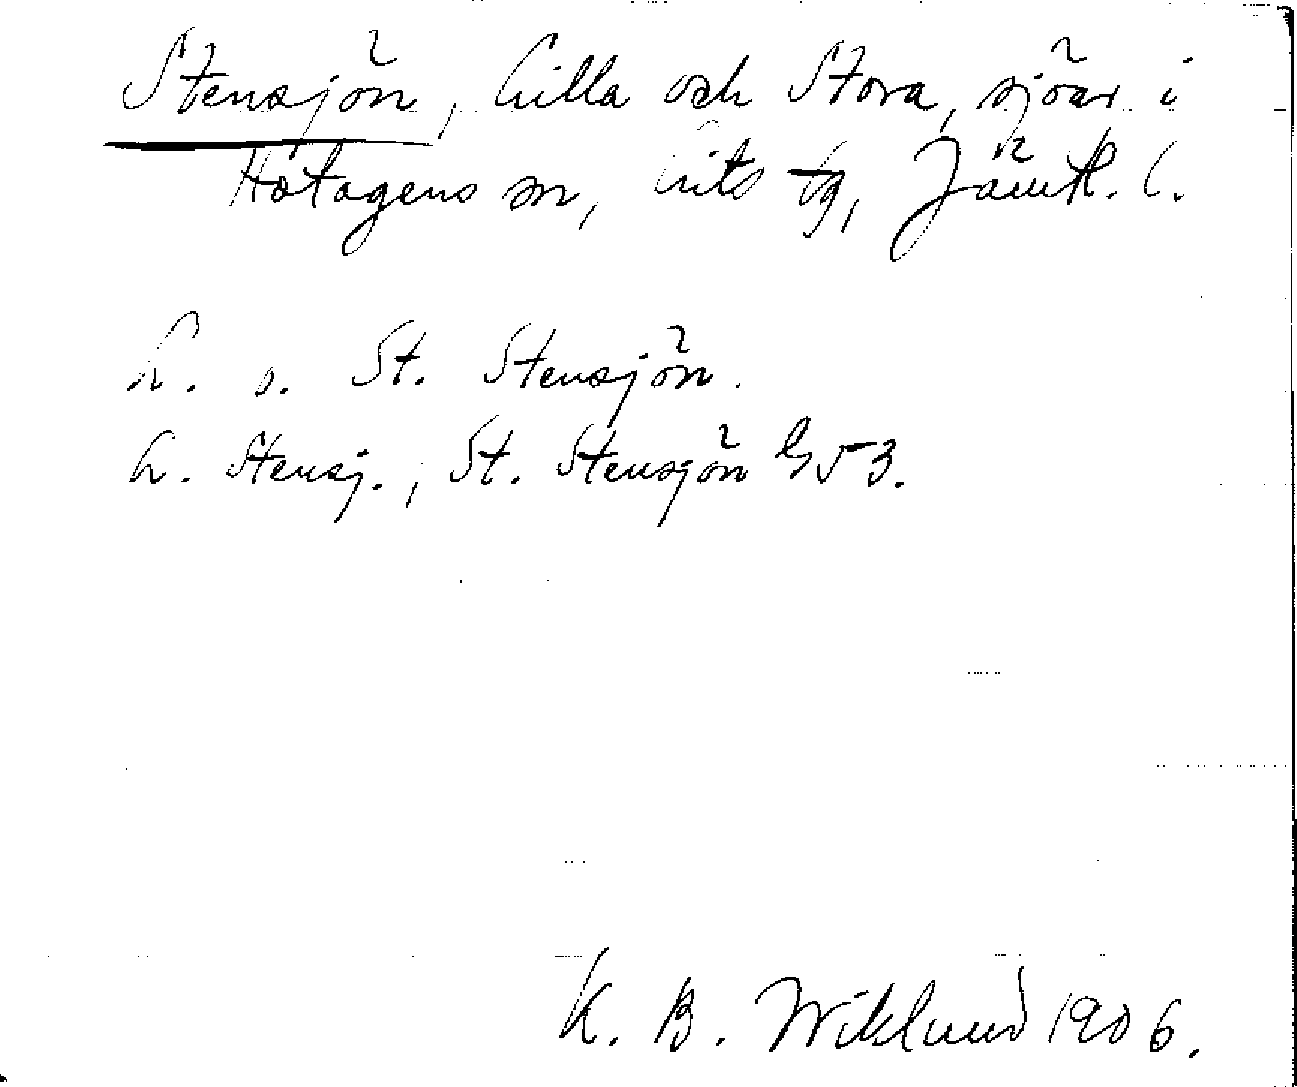 Stensjön, Lilla och Stora, sjöar i
Hotagens sn, Lits tg, Jämtl. l.
L. o. St. Stensjön.
L. Stensj., St. Stensjön G 53.
K. B. Wiklund 1906.